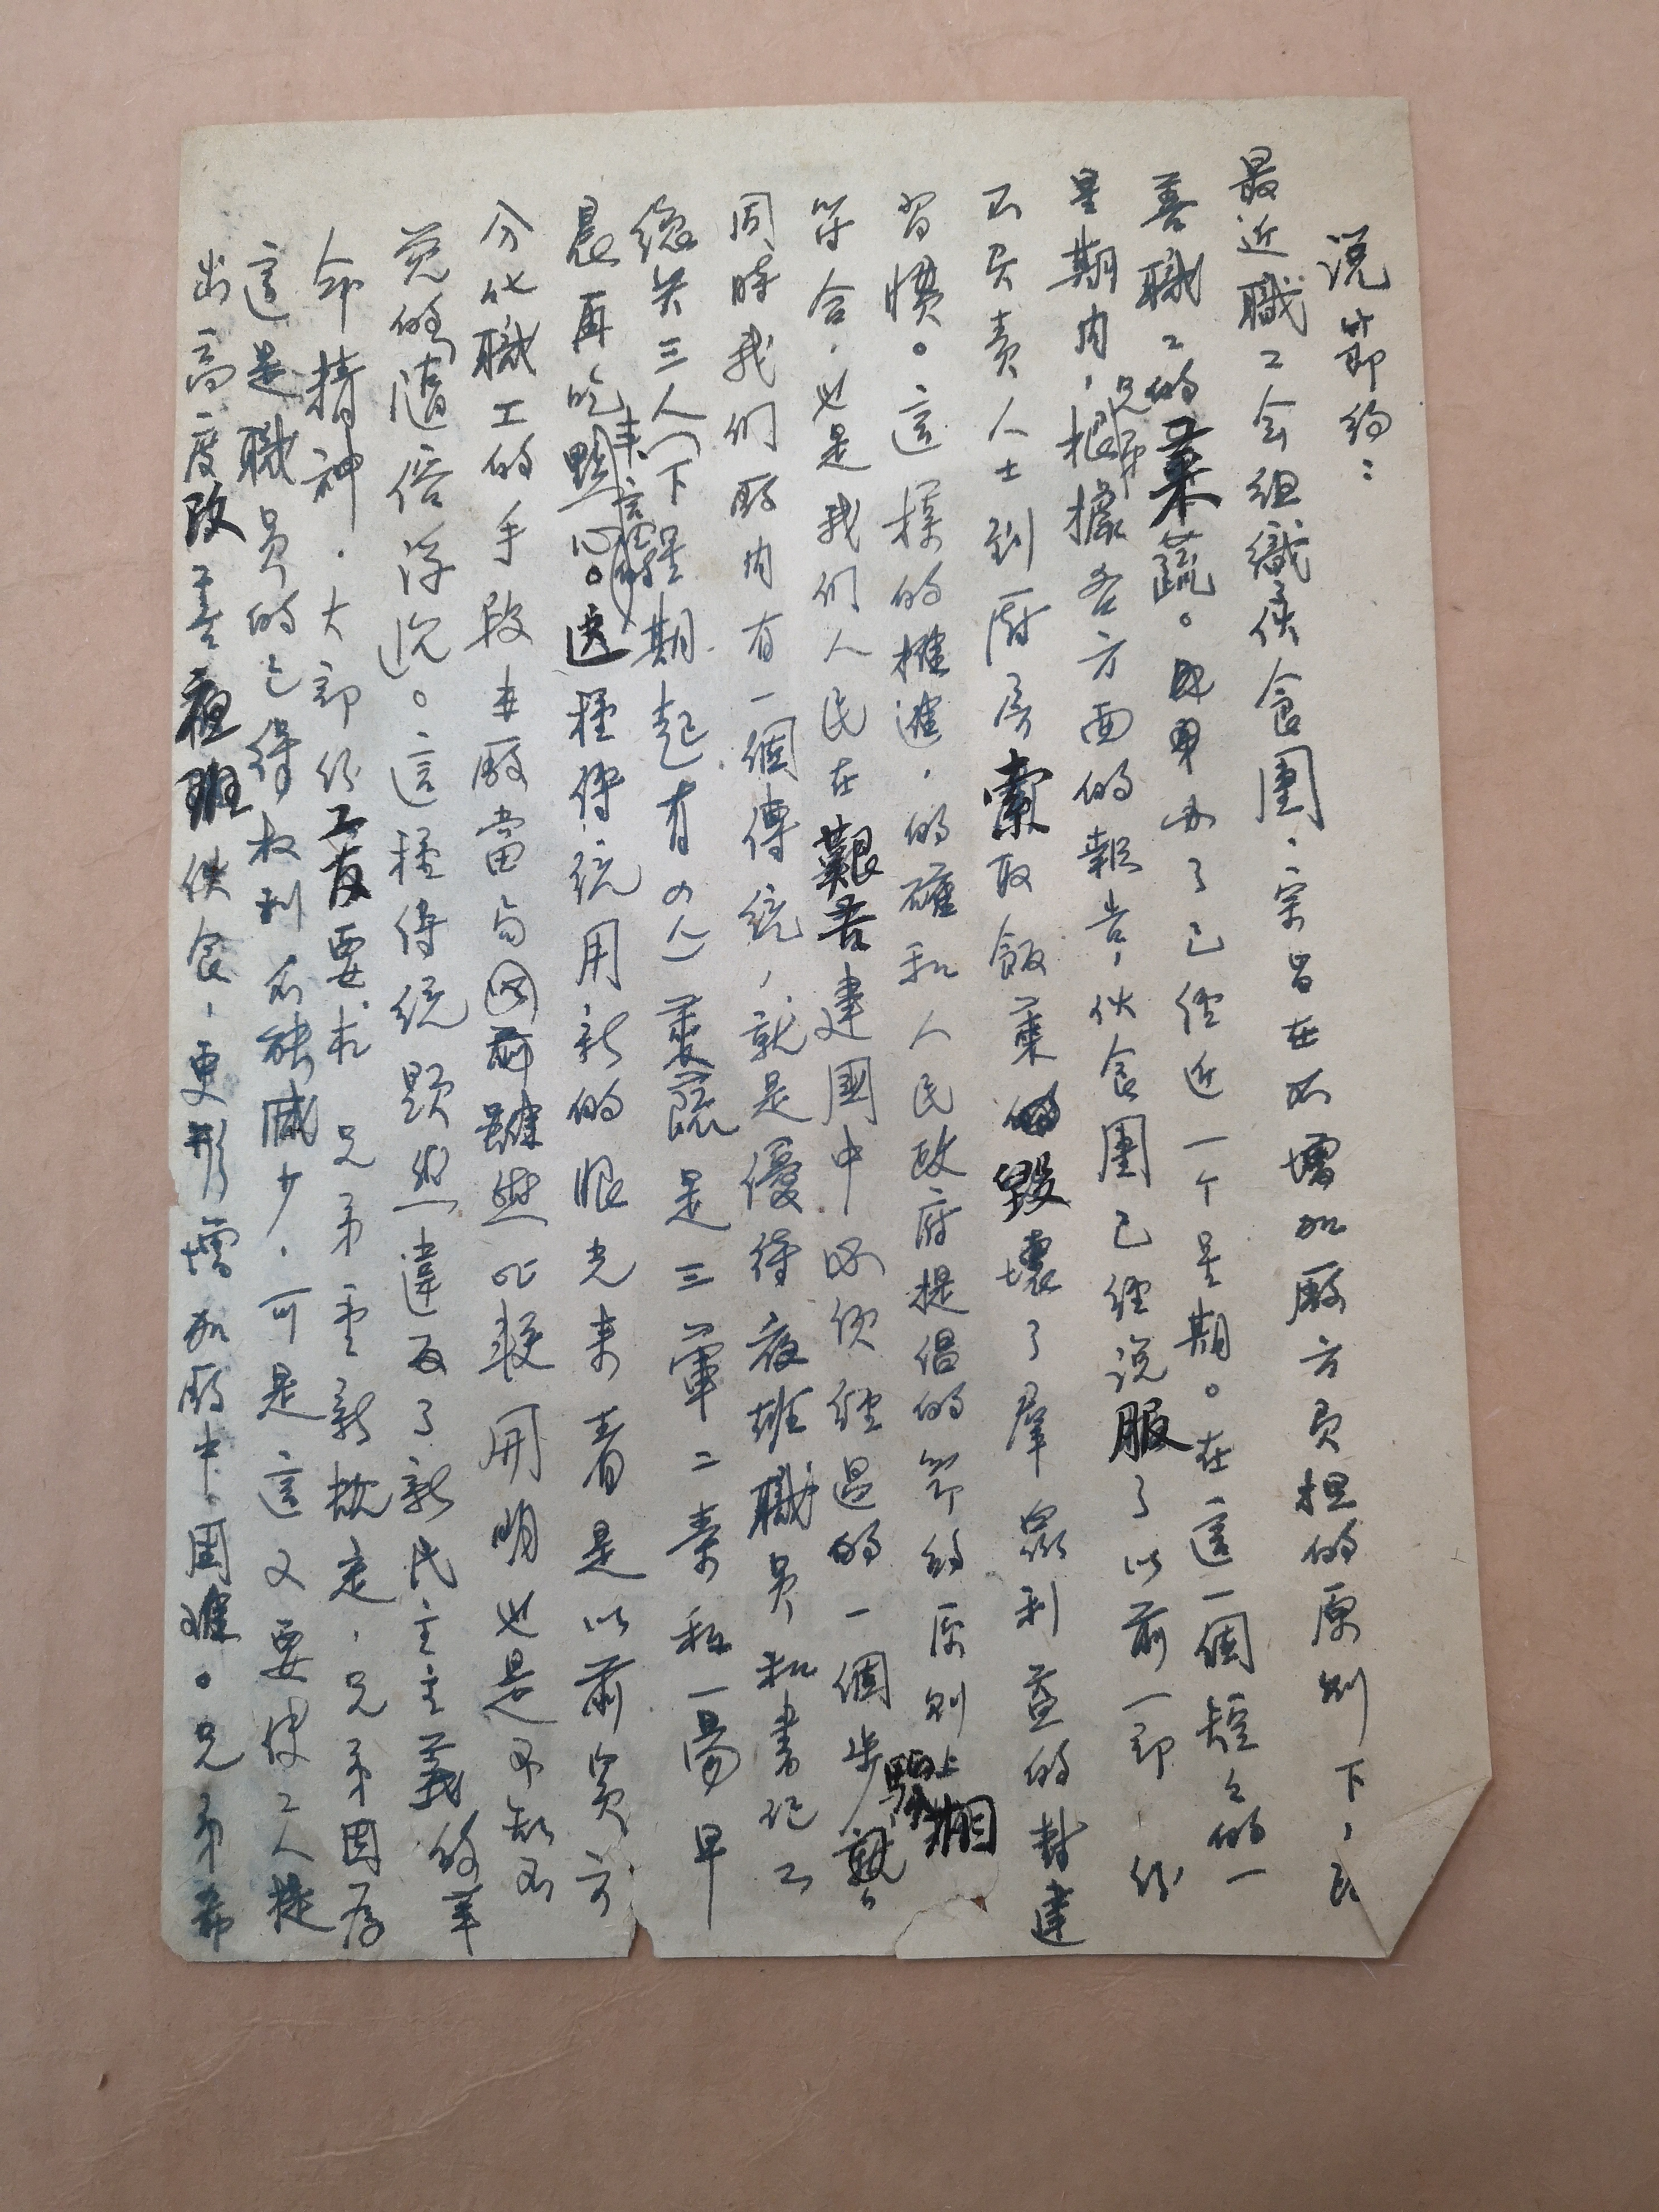 说節約：
最近職工会组織伙食團，宗旨在不增加厰方負担的原则下，
善職工的菜蔬。已经近一个星期。在這一個短短的一
星期内，根據各方面的報告，伙食團已经说服了以前一部份
不負責人士到厨房索取飯菜毀壞了羣眾利益的封建
習慣。這樣的推進，的確和人民政府提倡的節约原则上相
符合，也是我们人民在艱苦建國中必须经過的一個步驟
同時我们厰内有一個傳统，就是優待夜班職員和書记工
总共三人（下星期起有四人）菜蔬是三葷二素和一湯早
晨再吃點心。這種傳统用新的眼光来看是以前資方
分化職工的手段本厰當局以前雖然比較開明也是不知不
觉的随俗浮沉。這種傳统顯然違反了新民主主義的革
命精神，大部份工友要求兄弟重新栿定，兄弟因為
這是職員的已得权利不能减少，可是這又要使工人提
出高度改善夜班伙食，更形增加厰中困难。兄弟希